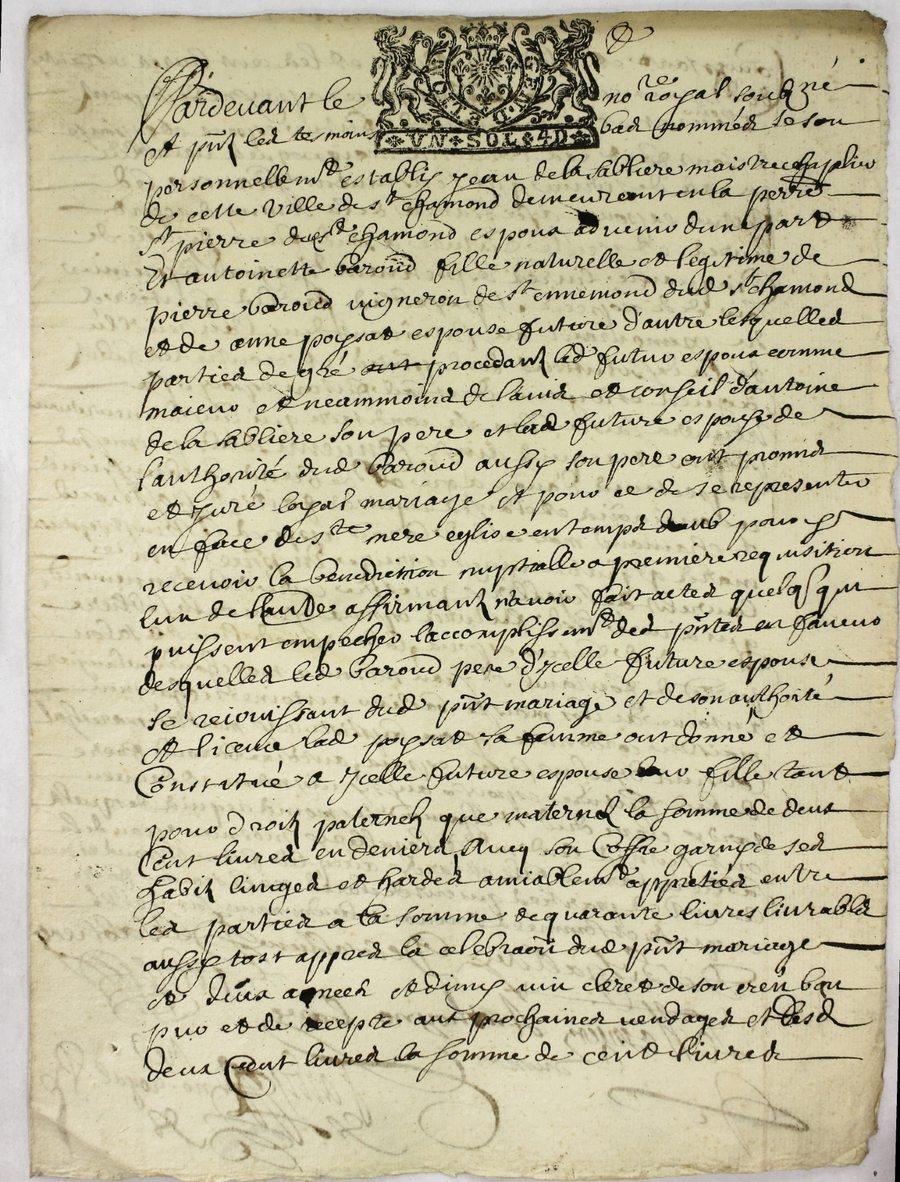 Pardevant le no.re royal soub.né
UN · SOL · 4D
et p̃nt les tesmoins bas nommés se son
personnellem.t establis Jean de la sabliere maistre chaplier
de cette ville de S.t chamond demeurant en la perrie
S.t pierre dud S.t chamond espoux advenir d'une part
Et antoinette baroud fille naturelle et legitime de
pierre baroud vigneron de S.t ennemond dud S.t chamond
et de anne poysat espouse future d'autre lesquelles
parties de gré procedant led futur espoux comme
maieur et neammoins de l'avis et conseil d'antoine
de la sabliere son pere et lad future espouse de
l'authorité dud baroud aussy son pere ont promis
et juré loyal mariage et pour ce de se representer
en face de S.te mere eglise en temps deub pour y
recevoir la benediction nuptialle a premiere requisition
l'un de l'autre affirmant n'avoir fait actes quelq qui
puissent empecher l'accomplissem.t des p̃ntes en faveur
desquelles led baroud pere d'jcelle future espouse
se rejouissant dud p̃nt mariage et de son authorité
et licence lad poysat sa femme ont donné et
Constitué a jcelle future espouse leur fille tant
pour droits paternels que maternels la somme de deux
Cent livres en deniers avecq son Coffre garny de ses
habits linges et hardes amiablem.t appretiés entre
les parties a la somme de quarante livres livrables
aussy tost appres la celebraõn dud p̃nt mariage
et deux asnees et dimy vin cleret de son creu bon
pur et de recepte aux prochaines vendages et lesd
deux Cent livres la somme de cent livres